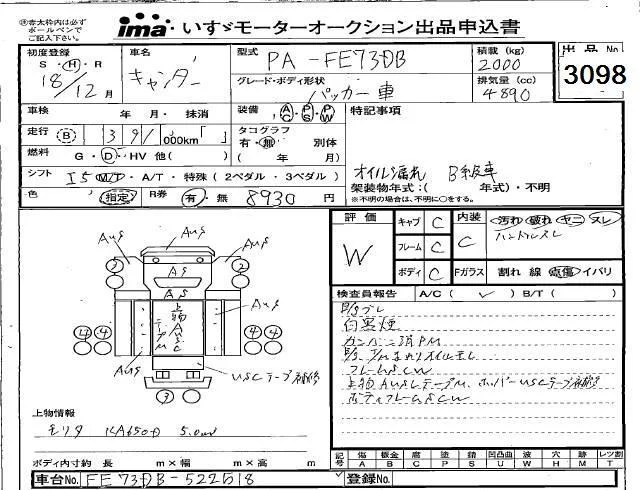 ※赤太枠内は必ず
ボールペンで
ご記入下さい。
ima いすゞモーターオークション出品申込書
初度登録 車名 型式 PA-FE73DB 積載(kg) 2000 出品No
S・H・R 18/12月 キャンター グレード・ボディ形状 パッカー車 排気量(cc) 4890 3098
車検 年 月・抹消 装備 AC・PS・PW 特記事項
走行 B 391 000km「 」 タコグラフ
有・無 別体
燃料 G・D・HV 他( ) ( 年 月)
オイル漏れ B級車
シフト I5 M/T・A/T・特殊(2ペダル・3ペダル) 架装物年式:( 年式)・不明
色 (指定) R券 有・無 8930円 ※不明の場合は、不明に○をする。
評価 W
キャブ C 内装 C 汚れ 破れ ヤニ スレ
フレーム C ハンドルスレ
ボディ C Fガラス 割れ 線 点傷 イバリ
検査員報告 A/C( ✓ ) B/T( )
白黒煙
フレームSCW
ボディフレームSCW
AUS
AUS AUS
2 2
AS
AS
AUS
4 4 4 4
AUS
USCテープ補修
3
上物情報
モリタ 5.0m3
ボディ内寸約 長 m×幅 m×高 m
記号 傷 板金 腐 塗 錆 凹凸曲 波 穴 跡 レツ割
A B C P S U W H M T
車台No. FE73DB-522518 登録No.